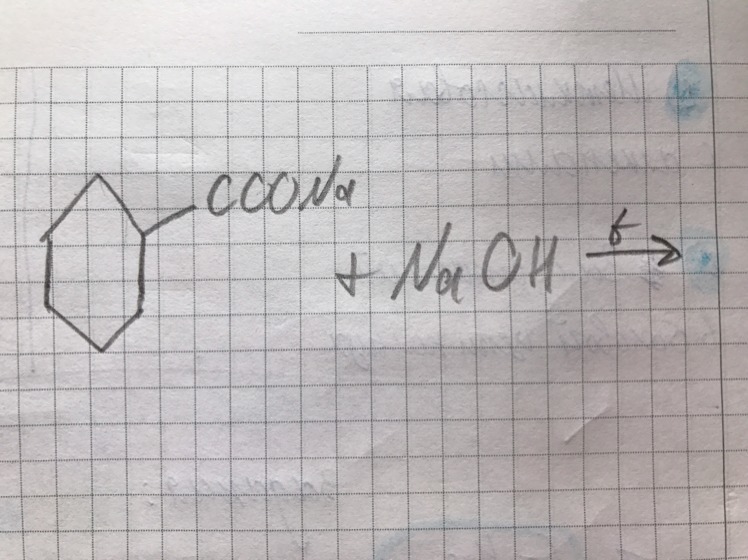 COONa
+ NaOH t→